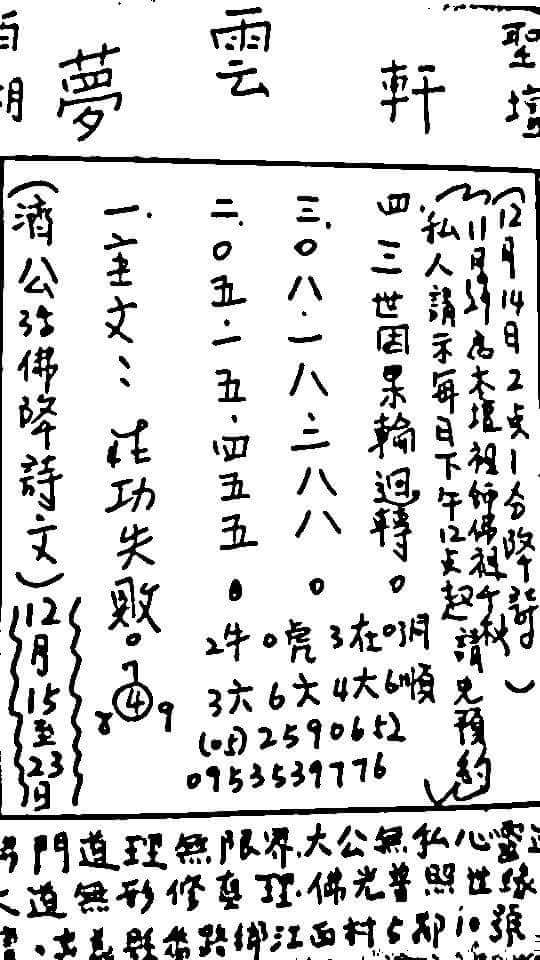 聖壇
軒
雲
夢
(12月14日2点1分降詩)
11月
本壇祖師佛祖千秋
私人請示每日下午12点起請先預約
四.三世因果輪迴轉。
三.0八.一八.三八八。
二.0五.一五.四五五。
一.主文:.成功失敗。
7
8④9
(濟公活佛降詩文)
12月15至23日
2牛0虎3在0洞
3六6六4大6順
(05)2590652
0953539776
門道理無限界.大公無私心靈
道無形修真理.佛光普照世緣
路鄉江西村5鄰10號